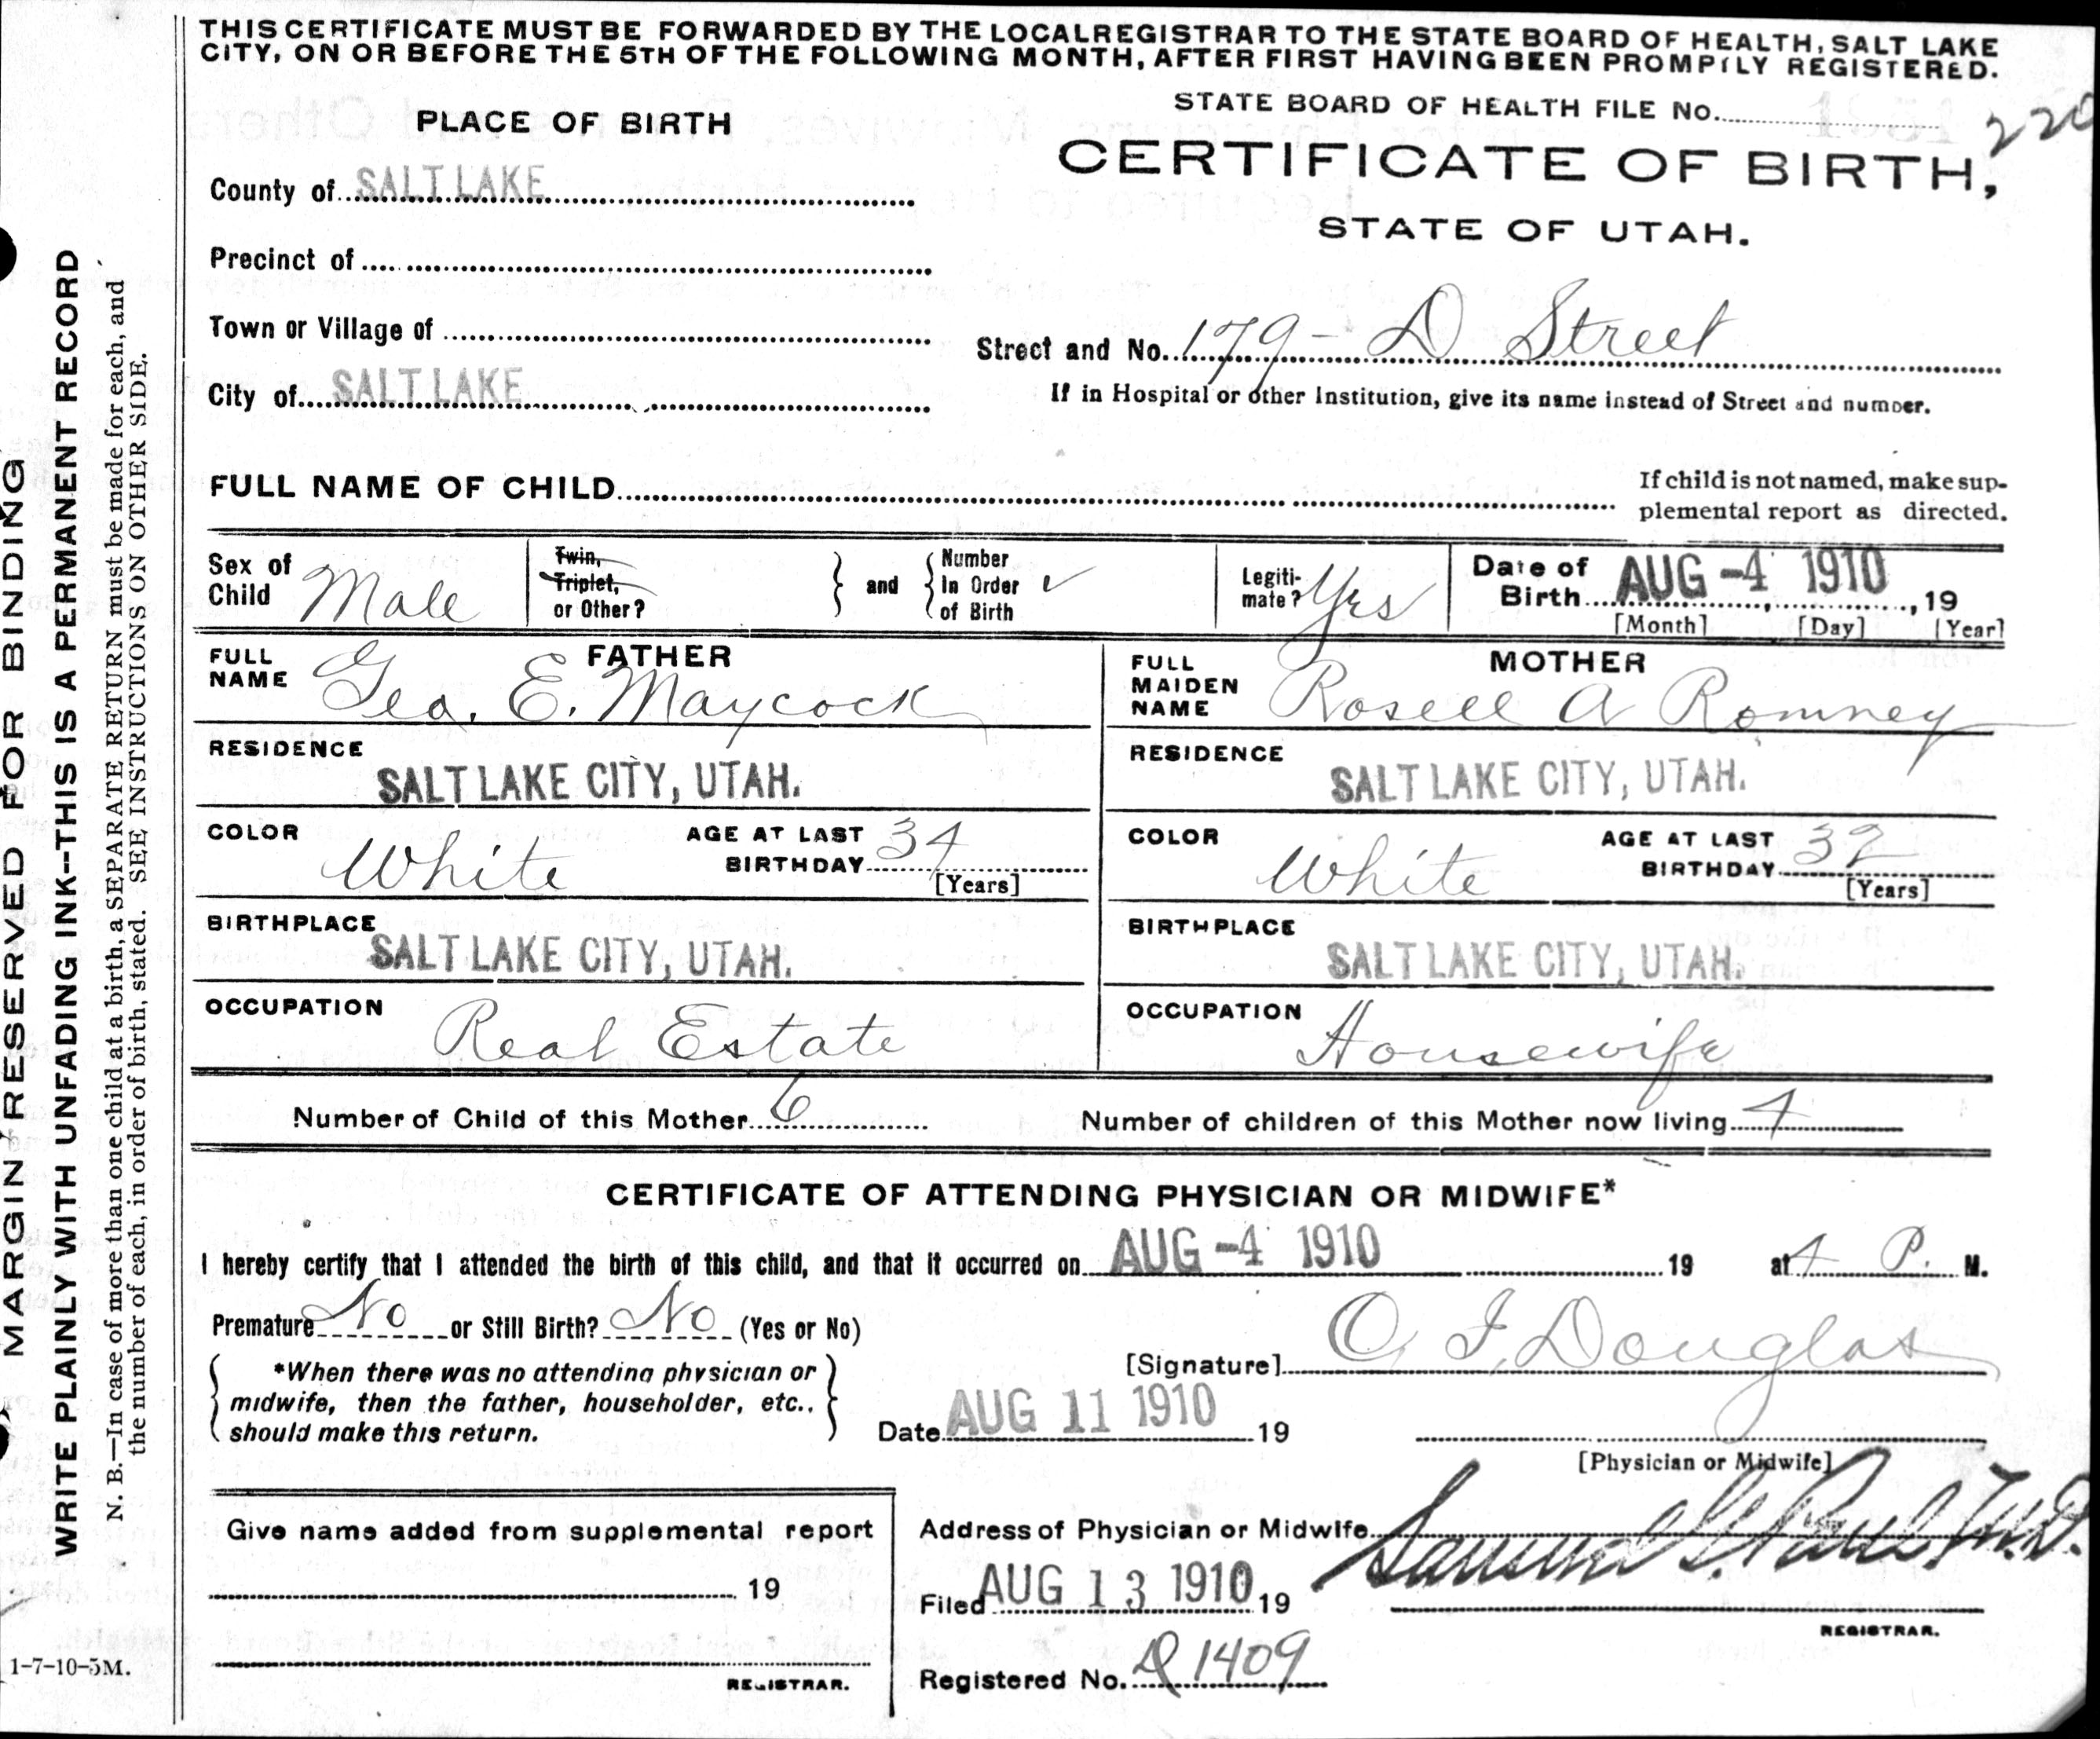 THIS CERTIFICATE MUST BE FORWARDED BY THE LOCAL REGISTRAR TO THE STATE BOARD OF HEALTH, SALT LAKE
CITY, ON OR BEFORE THE 5TH OF THE FOLLOWING MONTH, AFTER FIRST HAVING BEEN PROMPTLY REGISTERED.
STATE BOARD OF HEALTH FILE No. 220
PLACE OF BIRTH
CERTIFICATE OF BIRTH,
STATE OF UTAH.
County of SALT LAKE
Precinct of
Town or Village of
Street and No. 179 - D Street
City of SALT LAKE
If in Hospital or other Institution, give its name instead of Street and number.
FULL NAME OF CHILD
If child is not named, make sup-
plemental report as directed.
Sex of Child Male
Twin, Triplet, or Other?
and
Number In Order of Birth ✓
Legiti-mate? Yes
Date of Birth AUG -4 1910, 19
[Month] [Day] [Year]
FATHER
FULL NAME Geo. E. Maycock
MOTHER
FULL MAIDEN NAME Rosell A Romney
RESIDENCE SALT LAKE CITY, UTAH.
RESIDENCE SALT LAKE CITY, UTAH.
COLOR White AGE AT LAST BIRTHDAY 34 [Years]
COLOR White AGE AT LAST BIRTHDAY 32 [Years]
BIRTHPLACE SALT LAKE CITY, UTAH.
BIRTHPLACE SALT LAKE CITY, UTAH.
OCCUPATION Real Estate
OCCUPATION Housewife
Number of Child of this Mother 6 Number of children of this Mother now living 4
CERTIFICATE OF ATTENDING PHYSICIAN OR MIDWIFE*
I hereby certify that I attended the birth of this child, and that it occurred on AUG -4 1910 19 at 4 P. M.
Premature No or Still Birth? No (Yes or No)
*When there was no attending physician or
midwife, then the father, householder, etc.,
should make this return.
[Signature] O. J. Douglas
Date AUG 11 1910 19
[Physician or Midwife]
Give name added from supplemental report
19
REGISTRAR.
Address of Physician or Midwife
Samuel G. Paul M.D.
Filed AUG 13 1910 19
REGISTRAR.
Registered No. D 1409
MARGIN RESERVED FOR BINDING
WRITE PLAINLY WITH UNFADING INK--THIS IS A PERMANENT RECORD
N. B.—In case of more than one child at a birth, a SEPARATE RETURN must be made for each, and
the number of each, in order of birth, stated. SEE INSTRUCTIONS ON OTHER SIDE.
1-7-10-5M.